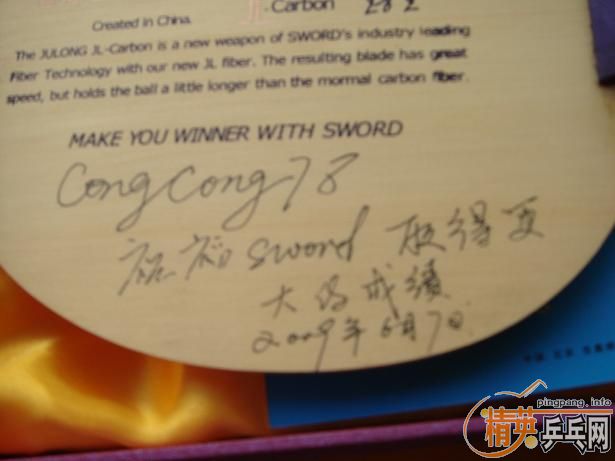 Created in China.
JL-Carbon 282
The JULONG JL-Carbon is a new weapon of SWORD's industry leading
Fiber Technology with our new JL fiber. The resulting blade has great
speed, but holds the ball a little longer than the mormal carbon fiber.
MAKE YOU WINNER WITH SWORD
CongCong78
祝福 sword 取得更
大的成绩
2009年6月7日
pingpang.info
精英乒乓网